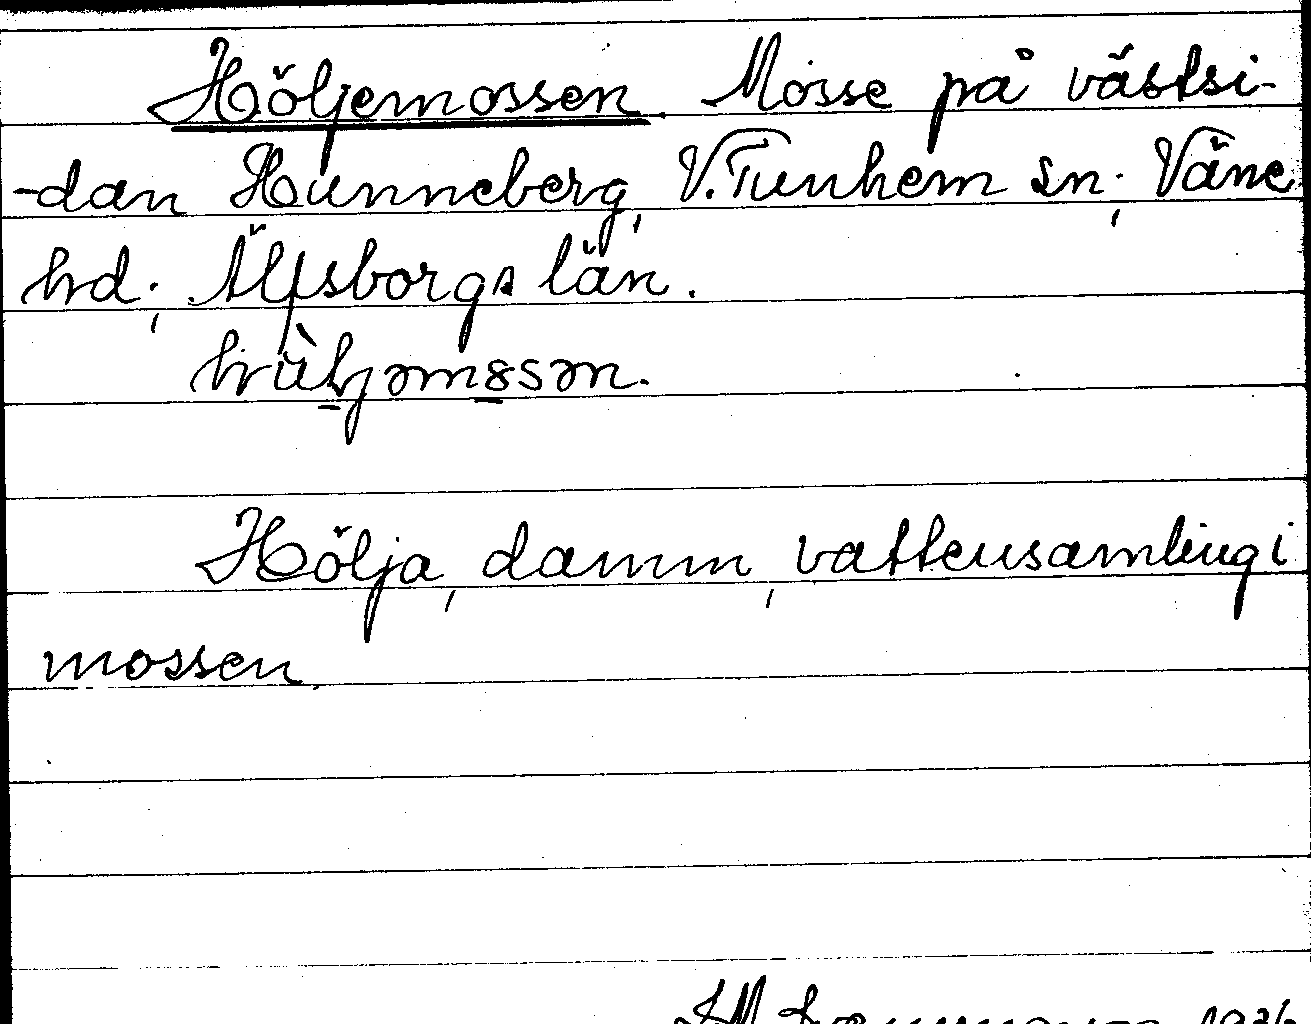 Höljemossen. Mosse på västsi-
-dan Hunneberg, V. Tunhem sn., Väne
hd., Älfsborgs län.
Hölja, damm, vattensamling i
mossen.